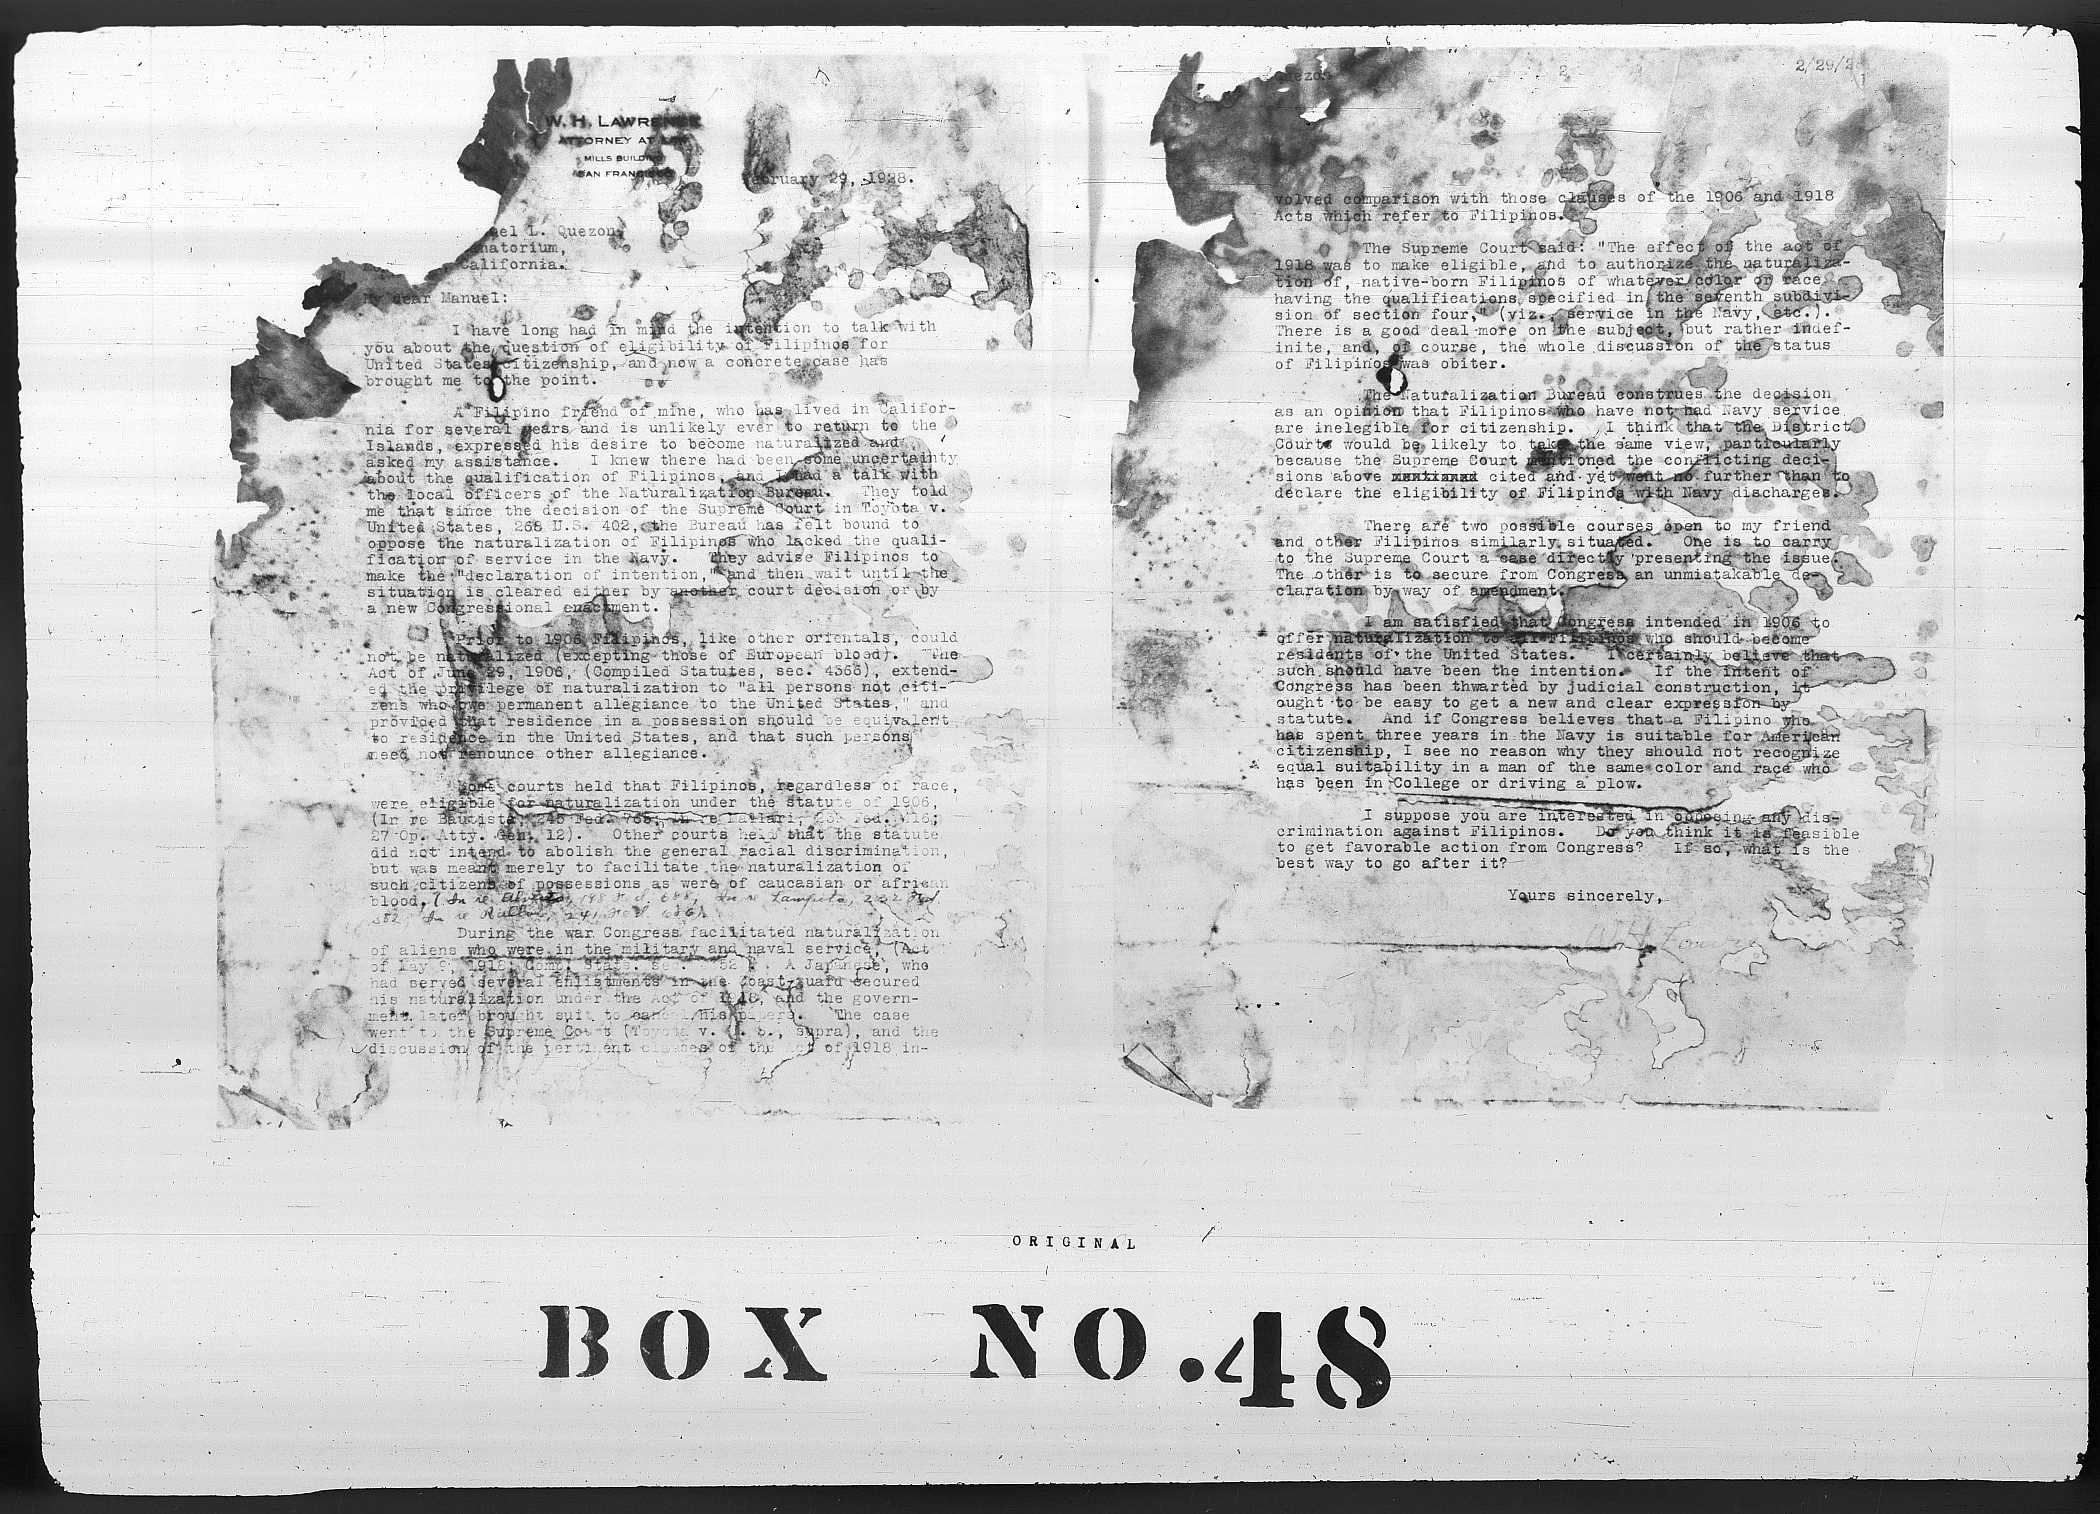 W. H. LAWRENCE
ATTORNEY AT LAW
MILLS BUILDING
SAN FRANCISCO
February 29, 1928.
el L. Quezon
natorium,
California.
My dear Manuel:
I have long had in mind the intention to talk with
you about the question of eligibility of Filipinos for
United States citizenship, and now a concrete case has
brought me to the point.
A Filipino friend of mine, who has lived in Califor-
nia for several years and is unlikely ever to return to the
Islands, expressed his desire to become naturalized and
asked my assistance. I knew there had been some uncertainty
about the qualification of Filipinos, and I had a talk with
the local officers of the Naturalization Bureau. They told
me that since the decision of the Supreme Court in Toyota v.
United States, 268 U.S. 402, the Bureau has felt bound to
oppose the naturalization of Filipinos who lacked the quali-
fication of service in the Navy. They advise Filipinos to
make the "declaration of intention," and then wait until the
situation is cleared either by another court decision or by
a new Congressional enactment.
Prior to 1906 Filipinos, like other orientals, could
not be naturalized (excepting those of European blood). The
Act of June 29, 1906, (Compiled Statutes, sec. 4366), extend-
ed the privilege of naturalization to "all persons not citi-
zens who owe permanent allegiance to the United States," and
provided that residence in a possession should be equivalent
to residence in the United States, and that such persons
need not renounce other allegiance.
Some courts held that Filipinos, regardless of race,
were eligible for naturalization under the statute of 1906,
(In re Bautista, 245 Fed. 765; In re Mallari, 239 Fed. 416;
27 Op. Atty. Gen. 12). Other courts held that the statute
did not intend to abolish the general racial discrimination,
but was meant merely to facilitate the naturalization of
such citizens of possessions as were of caucasian or african
blood. (In re Alverto, 198 Fed. 688, In re Lampitoe, 232 Fed.
382 In re Rallos, 241 Fed. 686).
During the war Congress facilitated naturalization
of aliens who were in the military and naval service, (Act
of May 9, 1918, Comp. Stats. sec. 4352). A Japanese, who
had served several enlistments in the Coast-guard secured
his naturalization under the Act of 1918, and the govern-
ment later brought suit to cancel his papers. The case
went to the Supreme Court (Toyota v. U. S., supra), and the
discussion of the pertinent clauses of the Act of 1918 in-
Quezon 2 2/29/2
volved comparison with those clauses of the 1906 and 1918
Acts which refer to Filipinos.
The Supreme Court said: "The effect of the act of
1918 was to make eligible, and to authorize the naturaliza-
tion of, native-born Filipinos of whatever color or race
having the qualifications specified in the seventh subdivi-
sion of section four," (viz., service in the Navy, etc.).
There is a good deal more on the subject, but rather indef-
inite, and, of course, the whole discussion of the status
of Filipinos was obiter.
The Naturalization Bureau construes the decision
as an opinion that Filipinos who have not had Navy service
are inelegible for citizenship. I think that the District
Courts would be likely to take the same view, particularly
because the Supreme Court mentioned the conflicting deci-
sions above cited and yet went no further than to
declare the eligibility of Filipinos with Navy discharges.
There are two possible courses open to my friend
and other Filipinos similarly situated. One is to carry
to the Supreme Court a case directly presenting the issue.
The other is to secure from Congress an unmistakable de-
claration by way of amendment.
I am satisfied that Congress intended in 1906 to
offer naturalization to all Filipinos who should become
residents of the United States. I certainly believe that
such should have been the intention. If the intent of
Congress has been thwarted by judicial construction, it
ought to be easy to get a new and clear expression by
statute. And if Congress believes that a Filipino who
has spent three years in the Navy is suitable for American
citizenship, I see no reason why they should not recognize
equal suitability in a man of the same color and race who
has been in College or driving a plow.
I suppose you are interested in opposing any dis-
crimination against Filipinos. Do you think it is feasible
to get favorable action from Congress? If so, what is the
best way to go after it?
Yours sincerely,
ORIGINAL
BOX NO. 48